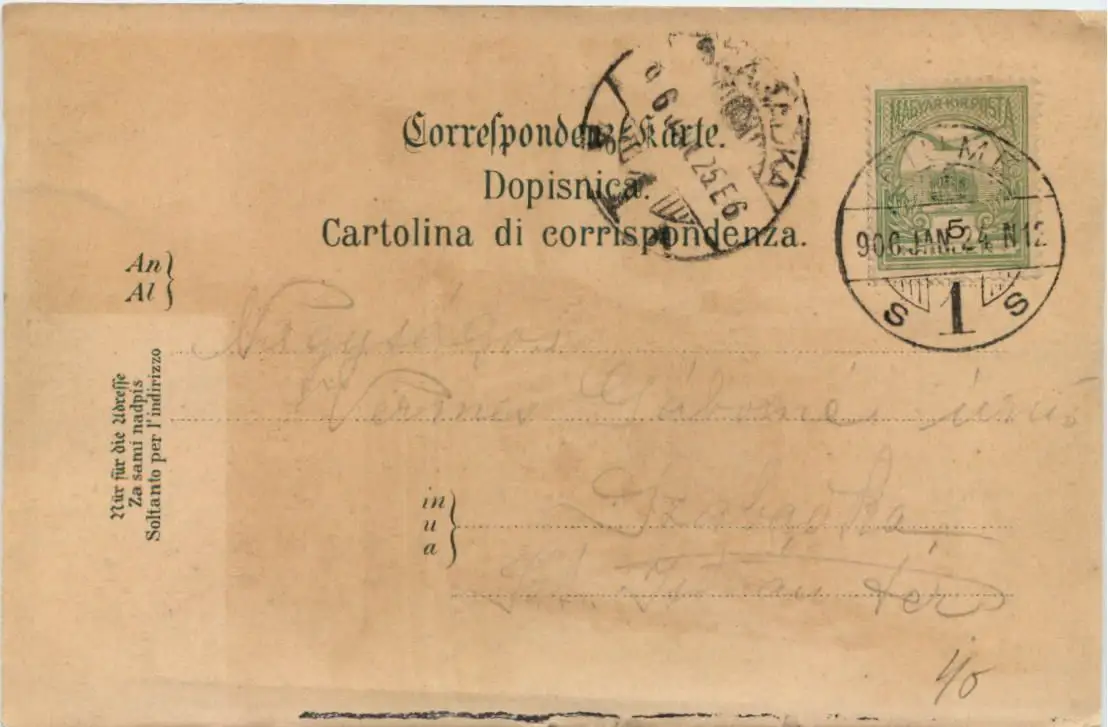 Correſpondenz-Karte.
Dopisnica.
Cartolina di corrispondenza.
MAGYAR·KIR·POSTA
5
900 JAN. 24 N12
S 1 S
SZABADKA
25 E6
An
Al
Nur für die Adreſſe
Za sami nadpis
Soltanto per l'indirizzo
Nagyságos
Vermes Gáborné úrnő
in
u
a
Szabadka
tér
40